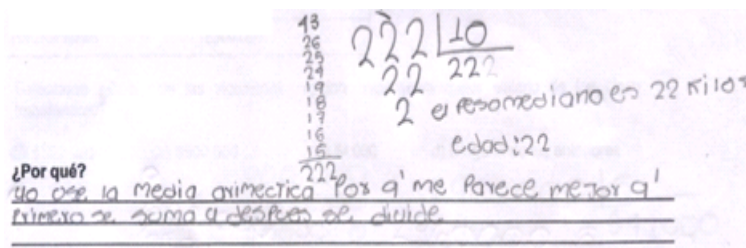 43
26
25
24
19
18
17
16
15
222
222 | 10
22 222
2 el pesomediano es 22 kilos
edad: 22
¿Por qué?
yo use la media arimectica Por q' me Parece mejor q'
Primero se suma y despues se divide